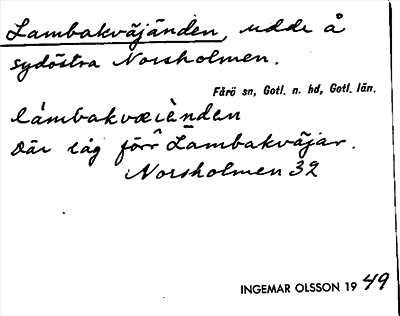 Lambakväjänden, udde å
sydöstra Norsholmen.
Fårö sn, Gotl. n. hd, Gotl. län.
lámbakvæìe̊nden
Där låg förr Lambakväjar.
Norsholmen 32
INGEMAR OLSSON 19 49